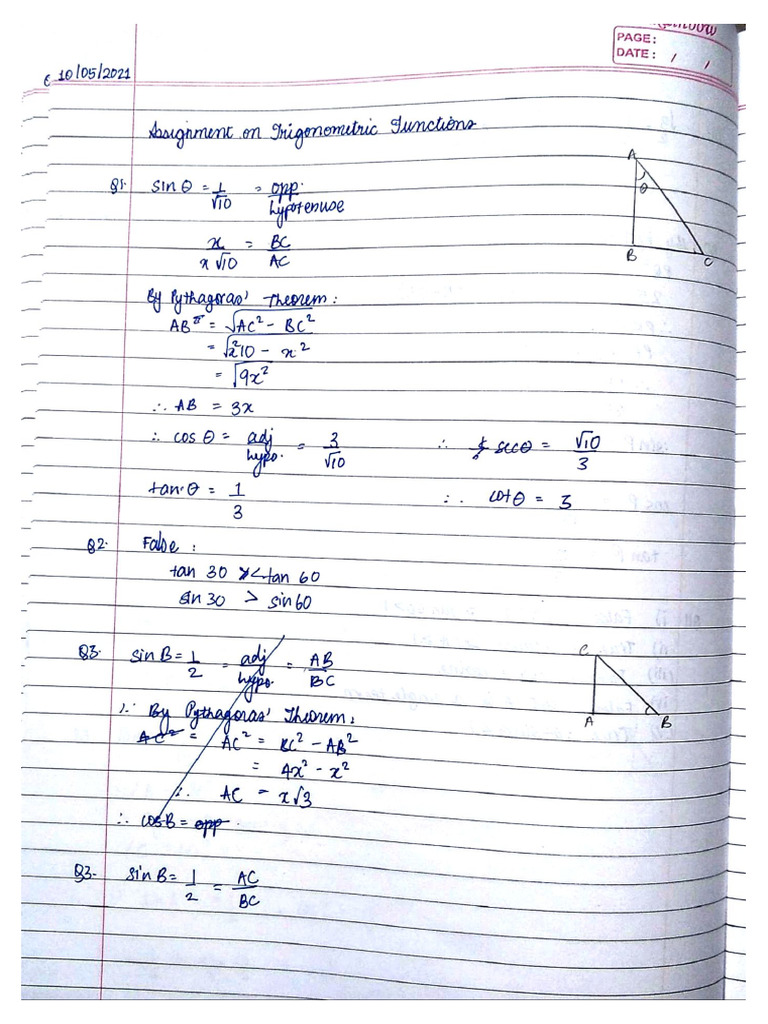 PAGE:
DATE: / /
10/05/2021
Assignment on Trigonometric Functions
Q1. sin θ = 1/√10 = opp./hypotenuse
x/x√10 = BC/AC
A
θ
B
C
By Pythagoras' Theorem:
AB = √AC² - BC²
= √x²10 - x²
= √9x²
∴ AB = 3x
∴ cos θ = adj/hypo. = 3/√10 ∴ sec θ = √10/3
tan θ = 1/3 ∴ cot θ = 3
Q2. False:
tan 30 < tan 60
sin 30 > sin 60
Q3. sin B = 1/2 = adj/hypo. = AB/BC
C
A
B
∴ By Pythagoras' Theorem:
AC² = AC² = BC² - AB²
= 4x² - x²
∴ AC = x√3
∴ cos B = opp
Q3. sin B = 1/2 = AC/BC